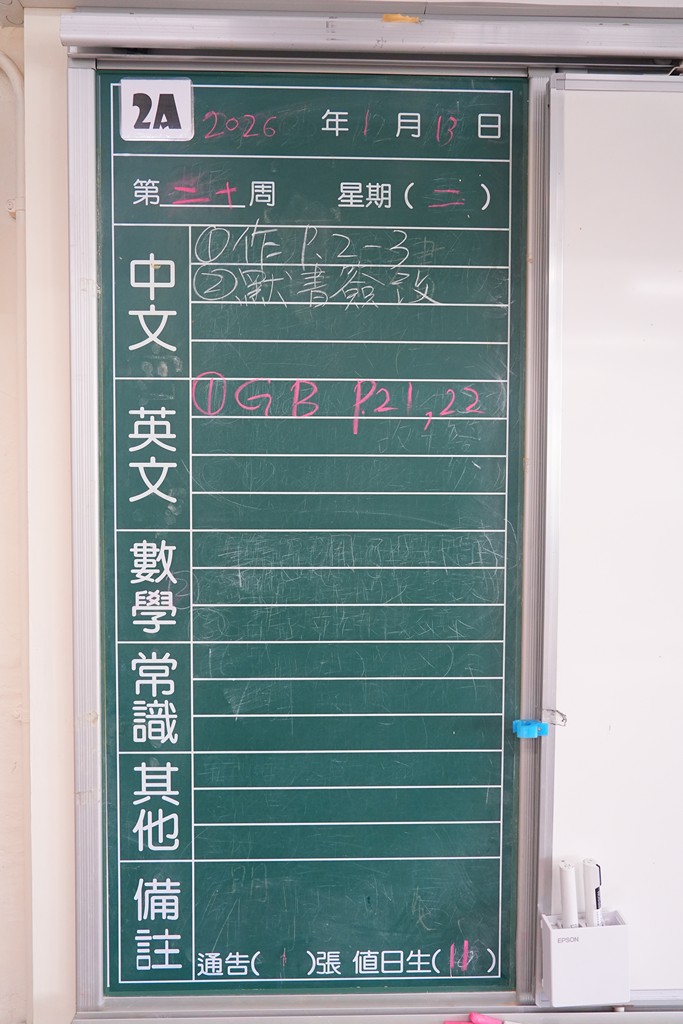 2A 2026 年 1 月 13 日
第 二十 周 星期 ( 二 )
中文
①作 P.2-3
②默書簽改
英文
①GB P.21,22
數學
常識
其他
備註
通告( )張 值日生( 11 )
EPSON